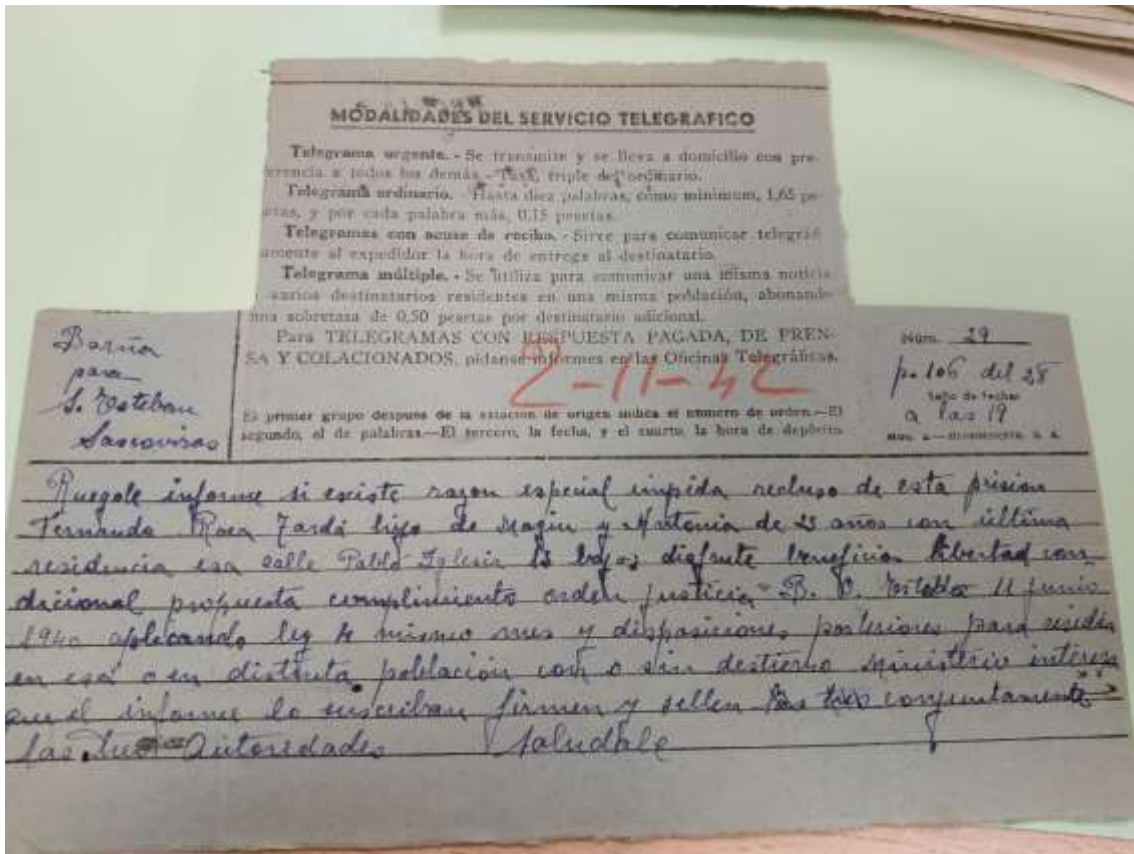 MODALIDADES DEL SERVICIO TELEGRAFICO
Telegrama urgente. - Se transmite y se lleva a domicilio con pre-
erencia a todos los demás. - Tasa, triple del ordinario.
Telegrama ordinario. - Hasta diez palabras, como minimum, 1,65 pe-
etas, y por cada palabra más, 0,15 pesetas.
Telegramas con acuse de recibo. - Sirve para comunicar telegráfi-
amente al expedidor la hora de entrega al destinatario.
Telegrama múltiple. - Se utiliza para comunicar una misma noticia
varios destinatarios residentes en una misma población, abonando
una sobretasa de 0,50 pesetas por destinatario adicional.
Para TELEGRAMAS CON RESPUESTA PAGADA, DE PREN-
SA Y COLACIONADOS, pídanse informes en las Oficinas Telegráficas.
2-11-42
El primer grupo después de la estación de origen indica el número de orden.—El
segundo, el de palabras.—El tercero, la fecha, y el cuarto, la hora de depósito
Barña
para
S. Esteban
Sasroviras
Núm. 29
p. 106 del 28
Sello de fechas
a las 19
Ruegole informe si existe razon especial impida recluso de esta prision
Fernando Roca Jardí hijo de Magin y Antonia de 23 años con última
residencia esa calle Pablo Iglesia 13 bajos disfrute beneficios libertad con
dicional propuesta cumplimiento orden justicia B. O. 11 junio
1940 aplicando ley 4 mismo mes y disposiciones posteriores para residir
en esa o en distinta poblacion con o sin destierro Ministerio interesa
que el informe lo suscriban firmen y sellen las tres conjuntamente
las autoridades Saludale